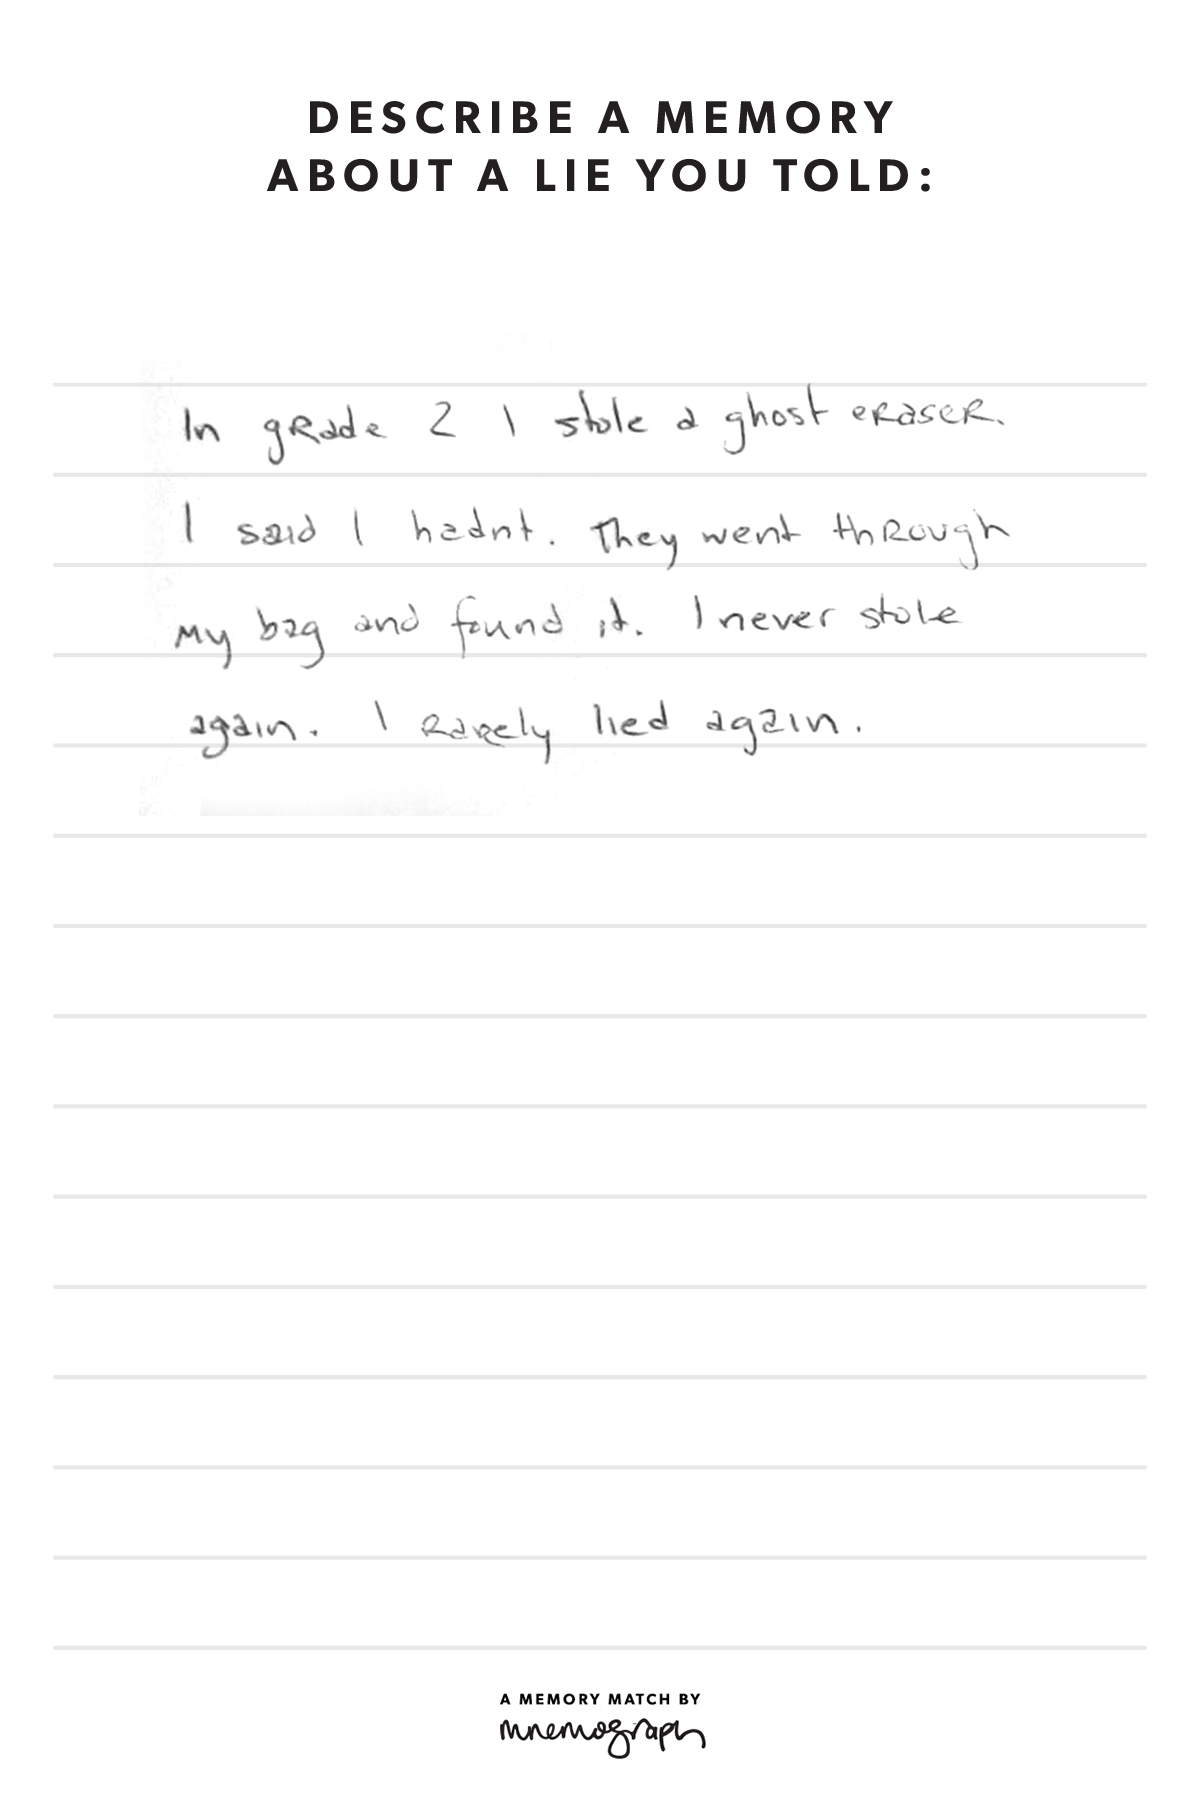 DESCRIBE A MEMORY
ABOUT A LIE YOU TOLD:
In grade 2 I stole a ghost eraser.
I said I hadnt. They went through
my bag and found it. I never stole
again. I rarely lied again.
A MEMORY MATCH BY
mnemograph